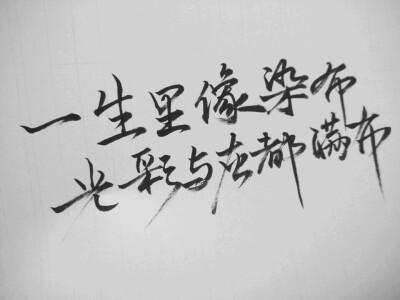 一生里像染布
光彩与灰都满布